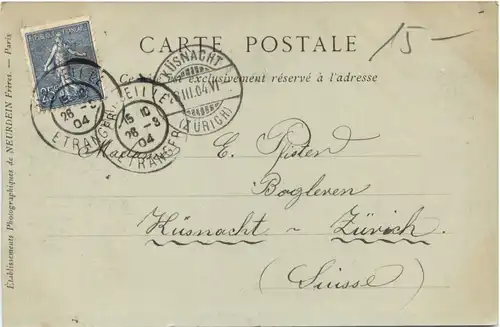 CARTE POSTALE
15-
Ce côté est exclusivement réservé à l'adresse
REPUBLIQUE FRANÇAISE
25
MARSEILLE
26-3
04
ETRANGER
MARSEILLE
15 10
26-3
04
ETRANGER
KÜSNACHT
28.III.04.VI
(ZÜRICH)
Madame
E. Pfister
Bogleren
Küsnacht - Zürich.
(Suisse)
Établissements Photographiques de NEURDEIN Frères. — Paris